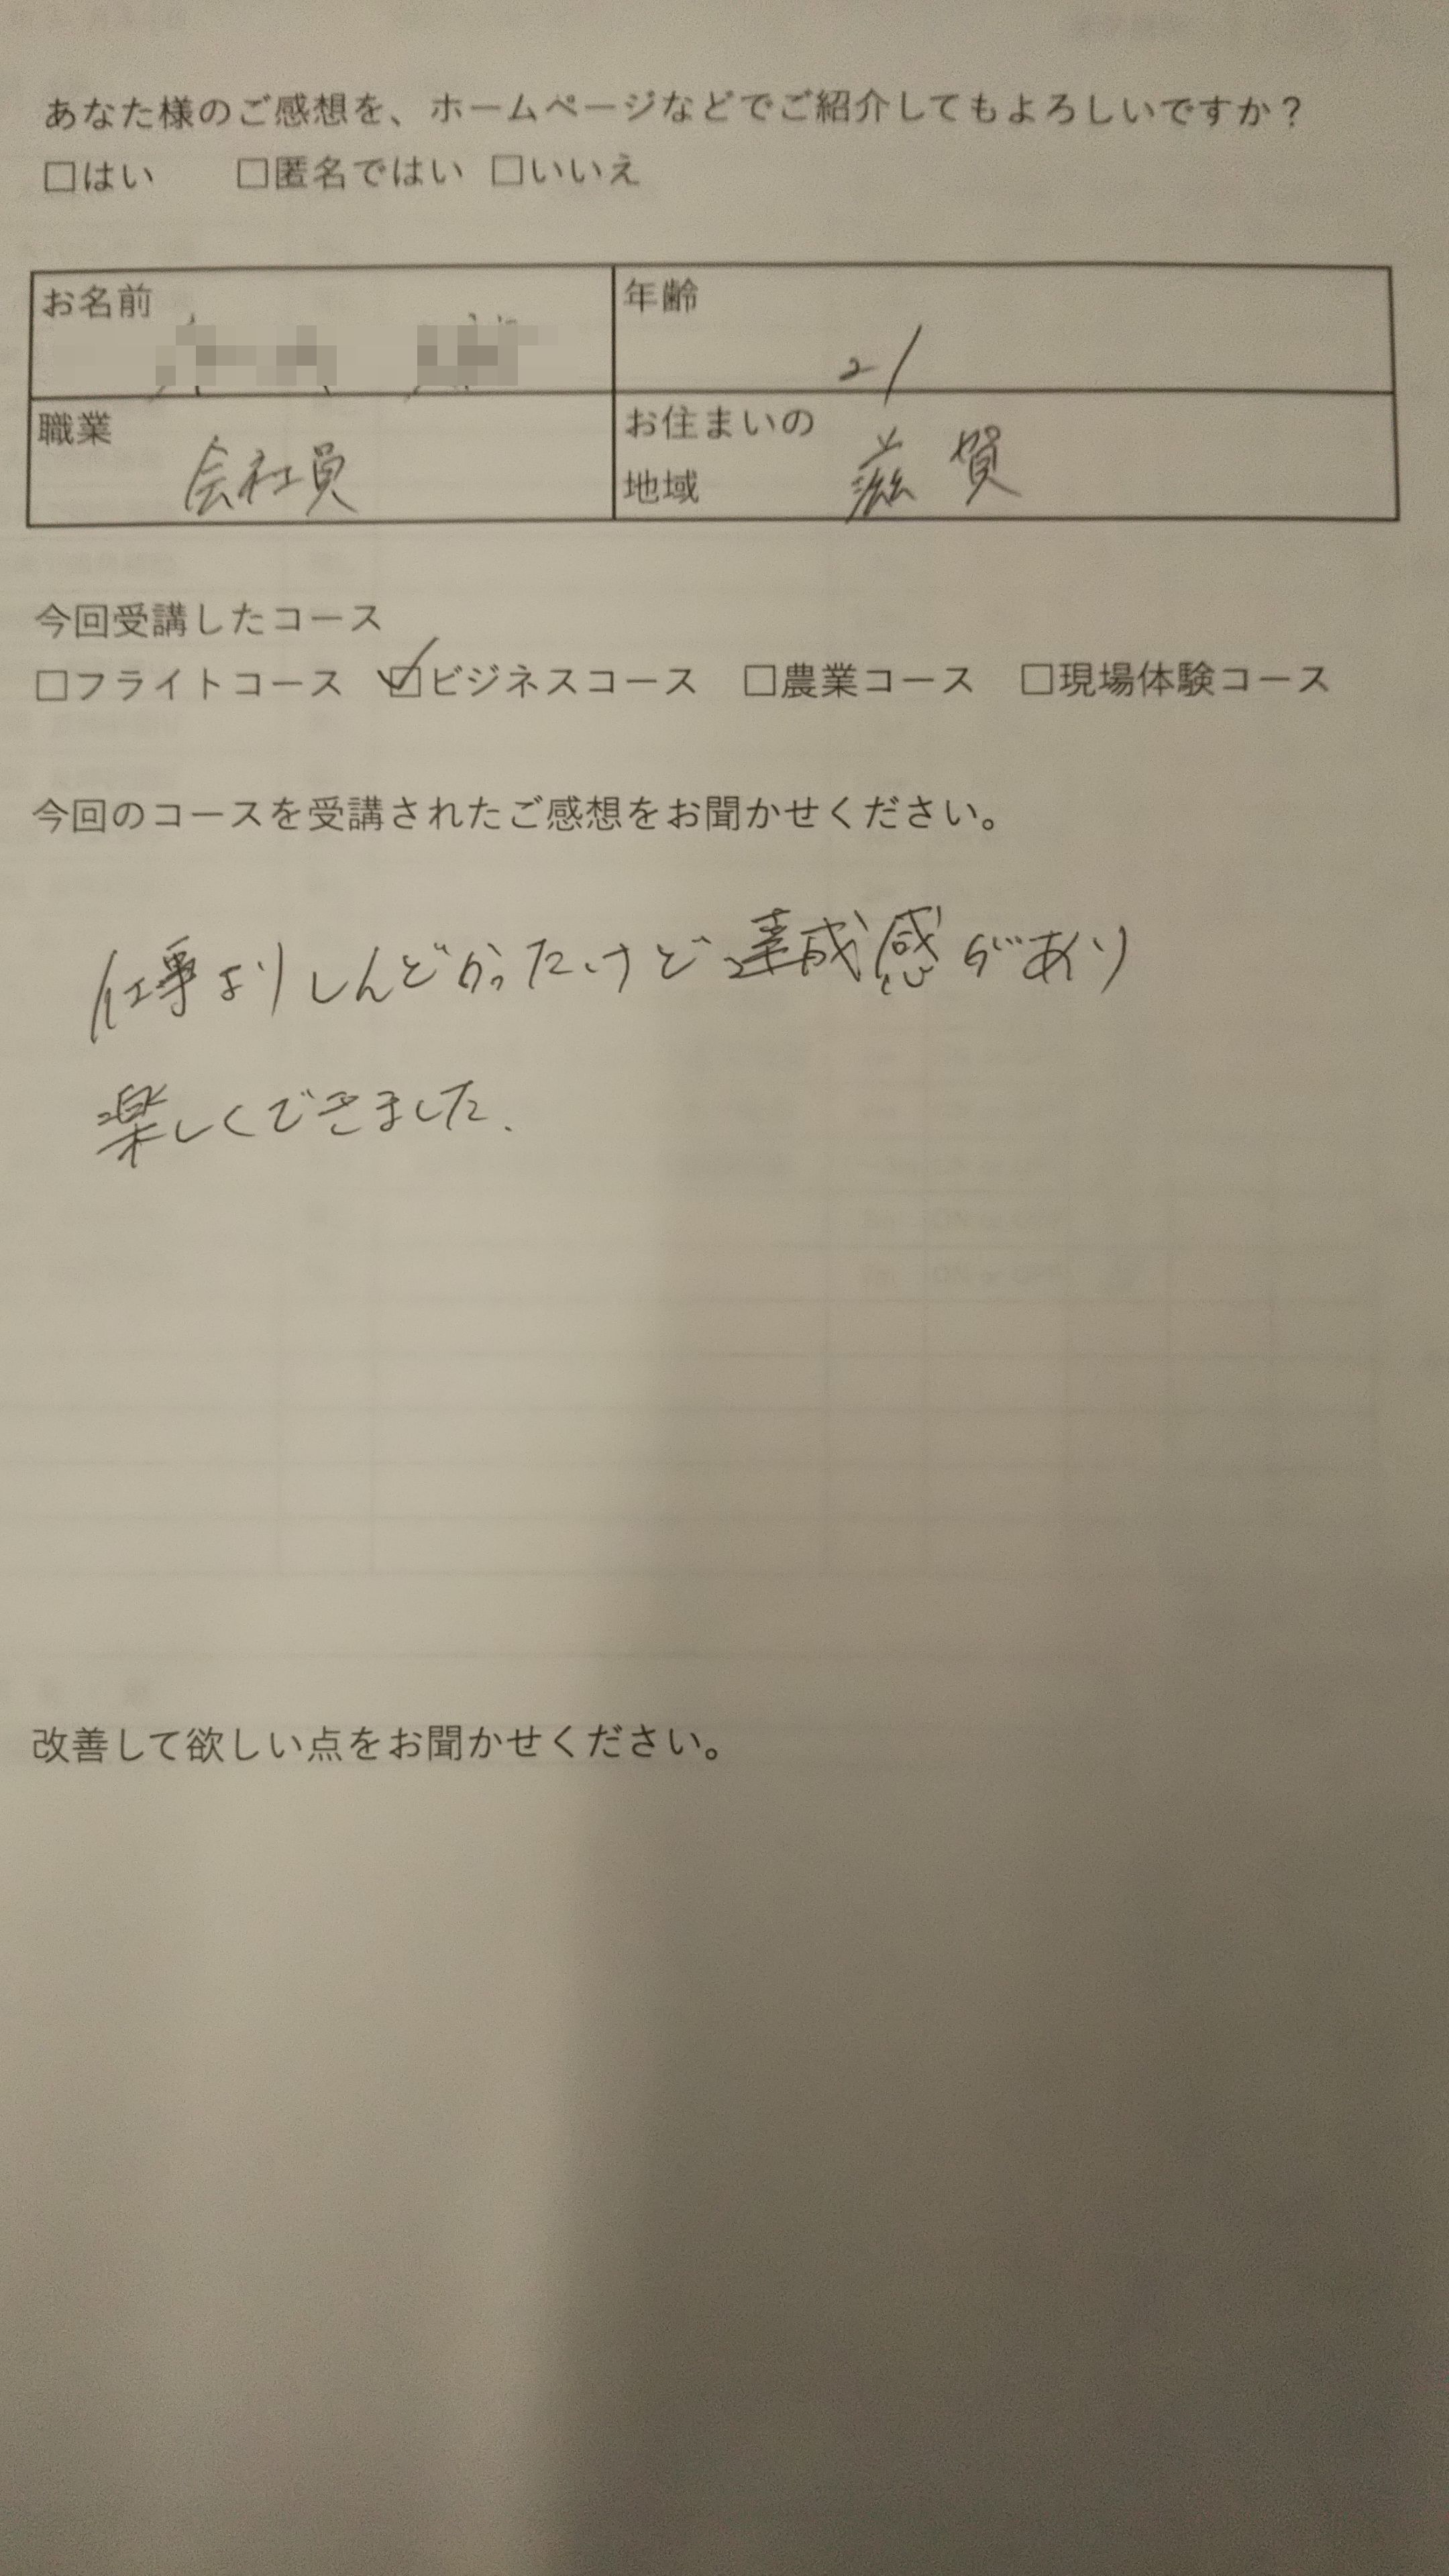 あなた様のご感想を、ホームページなどでご紹介してもよろしいですか？
□はい　□匿名ではい　□いいえ
お名前
年齢
21
職業
会社員
お住まいの
地域
滋賀
今回受講したコース
□フライトコース　☑ビジネスコース　□農業コース　□現場体験コース
今回のコースを受講されたご感想をお聞かせください。
仕事よりしんどかったけど達成感があり
楽しくできました.
改善して欲しい点をお聞かせください。